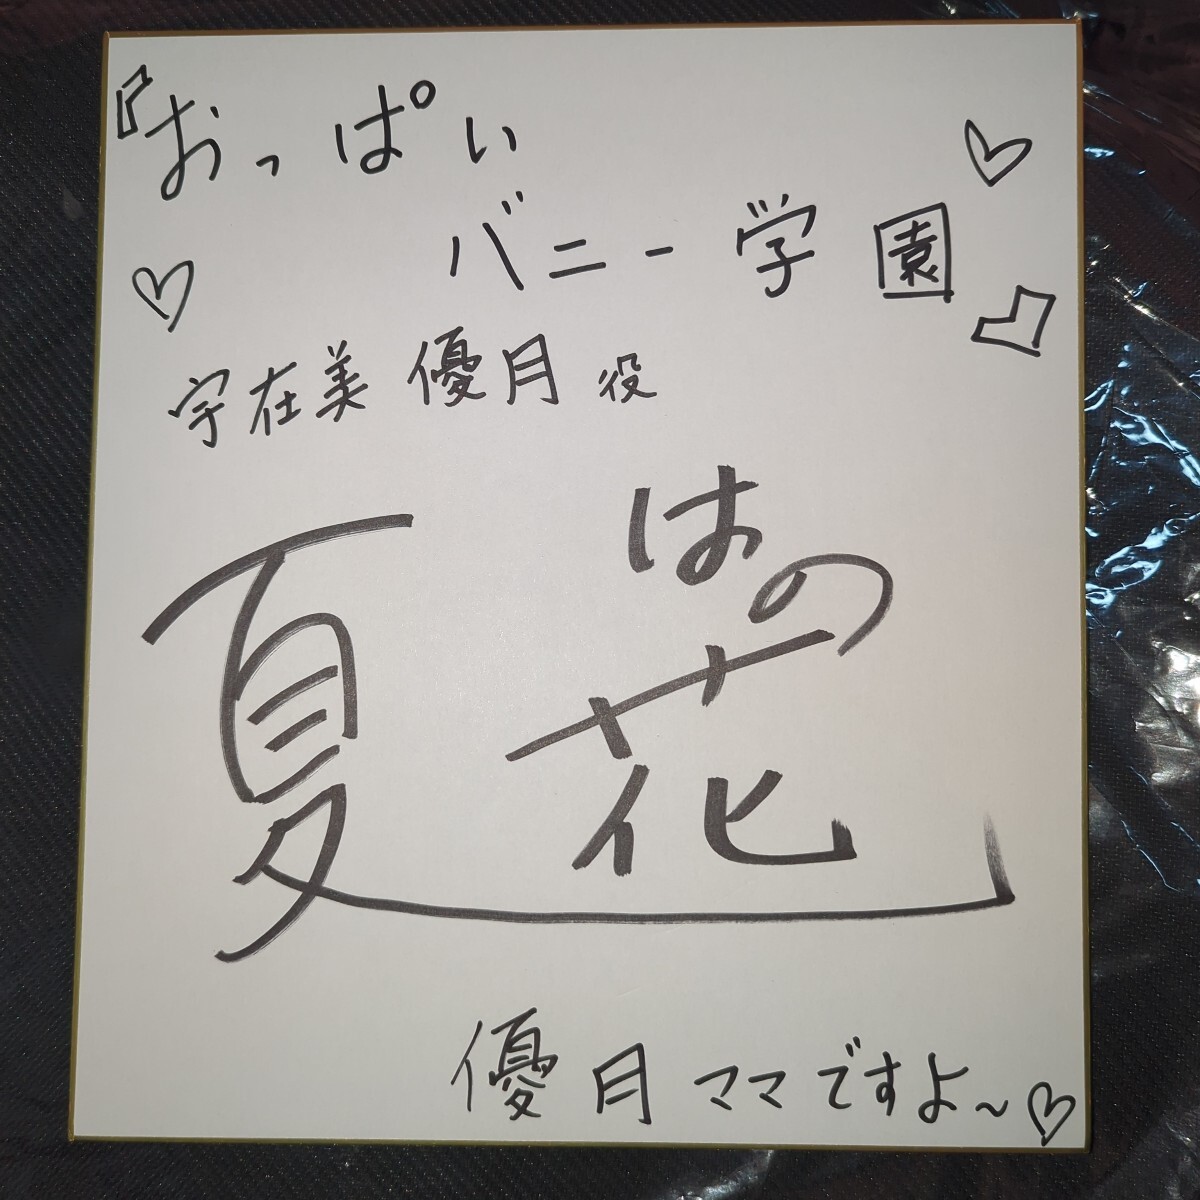 『おっぱい
♡
バニー学園』
♡
宇在美 優月 役
夏 はの 花
優月ママですよ~♡